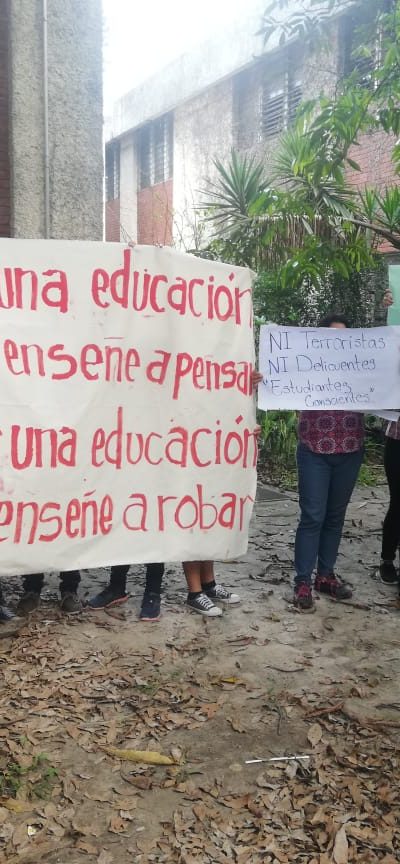 una educación
enseñe a pensar
una educación
enseñe a robar
NI Terroristas
NI Delicuentes
"Estudiantes
Conscientes"